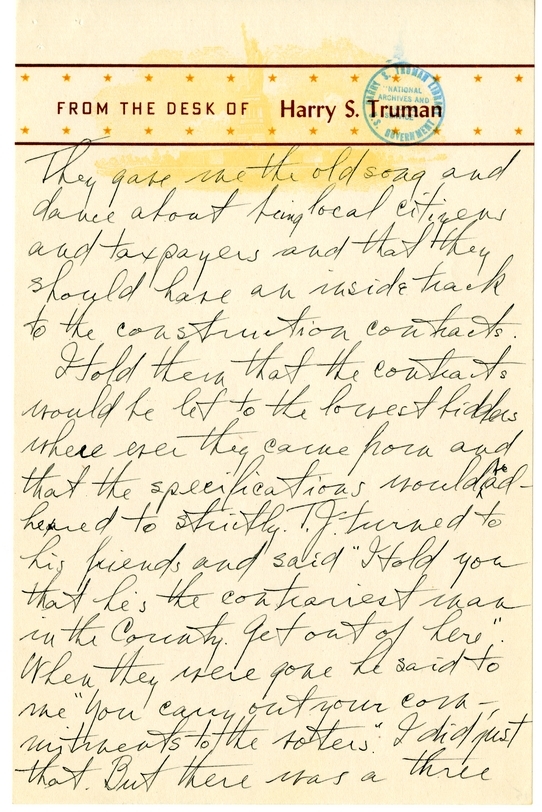 FROM THE DESK OF Harry S. Truman
HARRY S. TRUMAN LIBRARY
NATIONAL
ARCHIVES AND
U.S. GOVERNMENT
They gave me the old song and
dance about being local citizens
and taxpayers and that they
should have an inside track
to the construction contracts.
I told them that the contracts
would be let to the lowest bidders
where ever they came from and
that the specifications would be ad-
heared to strictly. T.J. turned to
his friends and said "I told you
that he's the contrariest man
in the County. Get out of here".
When they were gone he said to
me "you carry out your com-
mitments to the voters." I did just
that. But there was a three